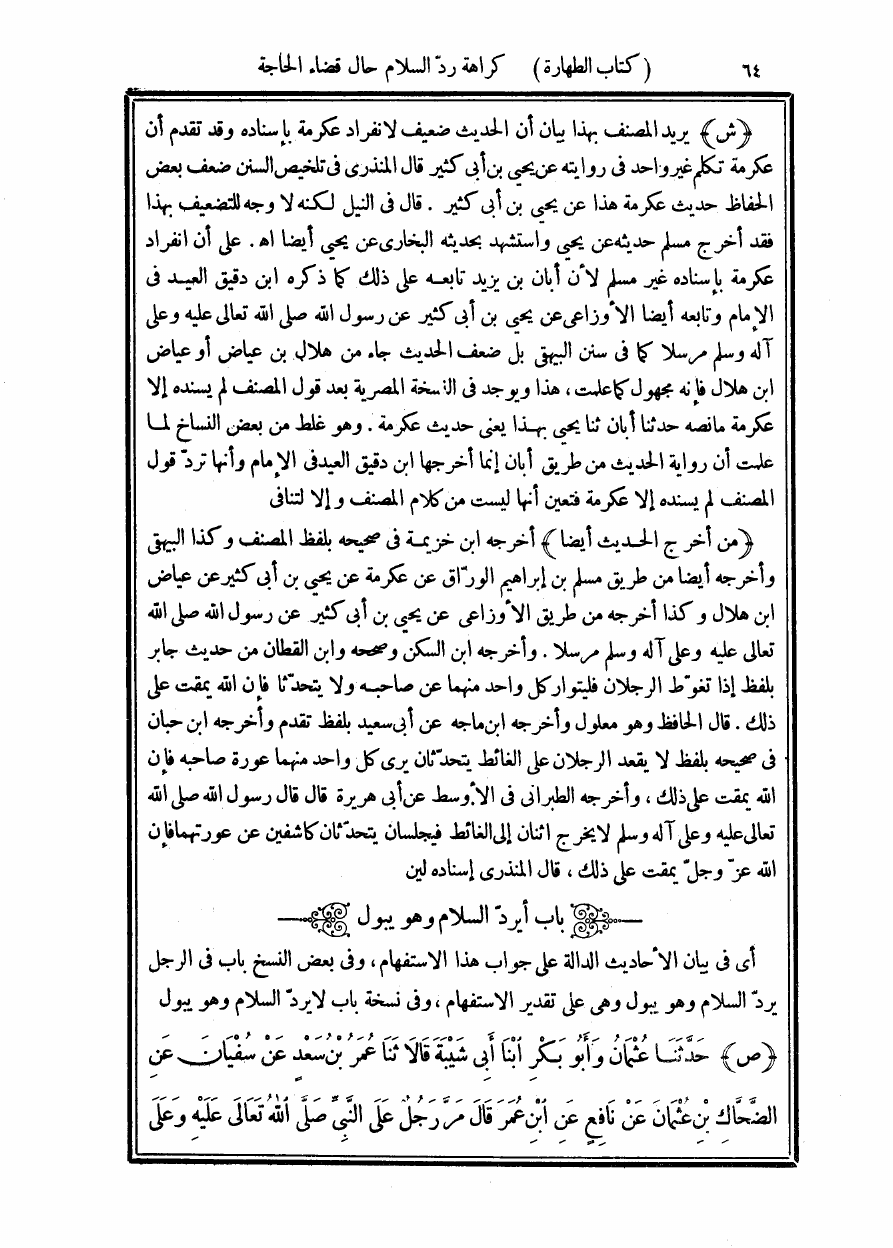 ٦٤ (كتاب الطهارة) كراهة ردّ السلام حال قضاء الحاجة
﴿ش﴾ يريد المصنف بهذا بيان أن الحديث ضعيف لانفراد عكرمة بإسناده وقد تقدم أن
عكرمة تكلم غير واحد فى روايته عن يحيى بن أبى كثير قال المنذرى فى تلخيص السنن ضعف بعض
الحفاظ حديث عكرمة هذا عن يحيى بن أبى كثير . قال فى النيل لكنه لا وجه للتضعيف بهذا
فقد أخرج مسلم حديثه عن يحيى واستشهد بحديثه البخارى عن يحيى أيضا اه . على أن انفراد
عكرمة بإسناده غير مسلم لأن أبان بن يزيد تابعه على ذلك كما ذكره ابن دقيق العيد فى
الإمام وتابعه أيضا الأوزاعى عن يحيى بن أبى كثير عن رسول الله صلى الله تعالى عليه وعلى
آله وسلم مرسلا كما فى سنن البيهقى بل ضعف الحديث جاء من هلال بن عياض أو عياض
ابن هلال فإنه مجهول كما علمت ، هذا ويوجد فى النسخة المصرية بعد قول المصنف لم يسنده إلا
عكرمة مانصه حدثنا أبان ثنا يحيى بهذا يعنى حديث عكرمة . وهو غلط من بعض النساخ لما
علمت أن رواية الحديث من طريق أبان إنما أخرجها ابن دقيق العيد فى الإمام وأنها تردّ قول
المصنف لم يسنده إلا عكرمة فتعين أنها ليست من كلام المصنف وإلا لتنافى
﴿من أخرج الحديث أيضا﴾ أخرجه ابن خزيمة فى صحيحه بلفظ المصنف وكذا البيهقى
وأخرجه أيضا من طريق مسلم بن إبراهيم الورّاق عن عكرمة عن يحيى بن أبى كثير عن عياض
ابن هلال وكذا أخرجه من طريق الأوزاعى عن يحيى بن أبى كثير عن رسول الله صلى الله
تعالى عليه وعلى آله وسلم مرسلا . وأخرجه ابن السكن وصححه وابن القطان من حديث جابر
بلفظ إذا تغوّط الرجلان فليتوار كل واحد منهما عن صاحبه ولا يتحدّثا فإن الله يمقت على
ذلك . قال الحافظ وهو معلول وأخرجه ابن ماجه عن أبى سعيد بلفظ تقدم وأخرجه ابن حبان
فى صحيحه بلفظ لا يقعد الرجلان على الغائط يتحدّثان يرى كل واحد منهما عورة صاحبه فإن
الله يمقت على ذلك ، وأخرجه الطبرانى فى الأوسط عن أبى هريرة قال قال رسول الله صلى الله
تعالى عليه وعلى آله وسلم لا يخرج اثنان إلى الغائط فيجلسان يتحدّثان كاشفين عن عورتهما فإن
الله عزّ وجلّ يمقت على ذلك ، قال المنذرى إسناده لين
باب أيردّ السلام وهو يبول
أى فى بيان الأحاديث الدالة على جواب هذا الاستفهام ، وفى بعض النسخ باب فى الرجل
يردّ السلام وهو يبول وهى على تقدير الاستفهام ، وفى نسخة باب لايردّ السلام وهو يبول
﴿ص﴾ حَدَّثَنَا عُثْمَانُ وَأَبُو بَكْرٍ ابْنَا أَبِى شَيْبَةَ قَالَا ثَنَا عُمَرُ بْنُ سَعْدٍ عَنْ سُفْيَانَ عَنِ
الضَّحَّاكِ بْنِ عُثْمَانَ عَنْ نَافِعٍ عَنِ ابْنِ عُمَرَ قَالَ مَرَّ رَجُلٌ عَلَى النَّبِىِّ صَلَّى اللهُ تَعَالَى عَلَيْهِ وَعَلَى